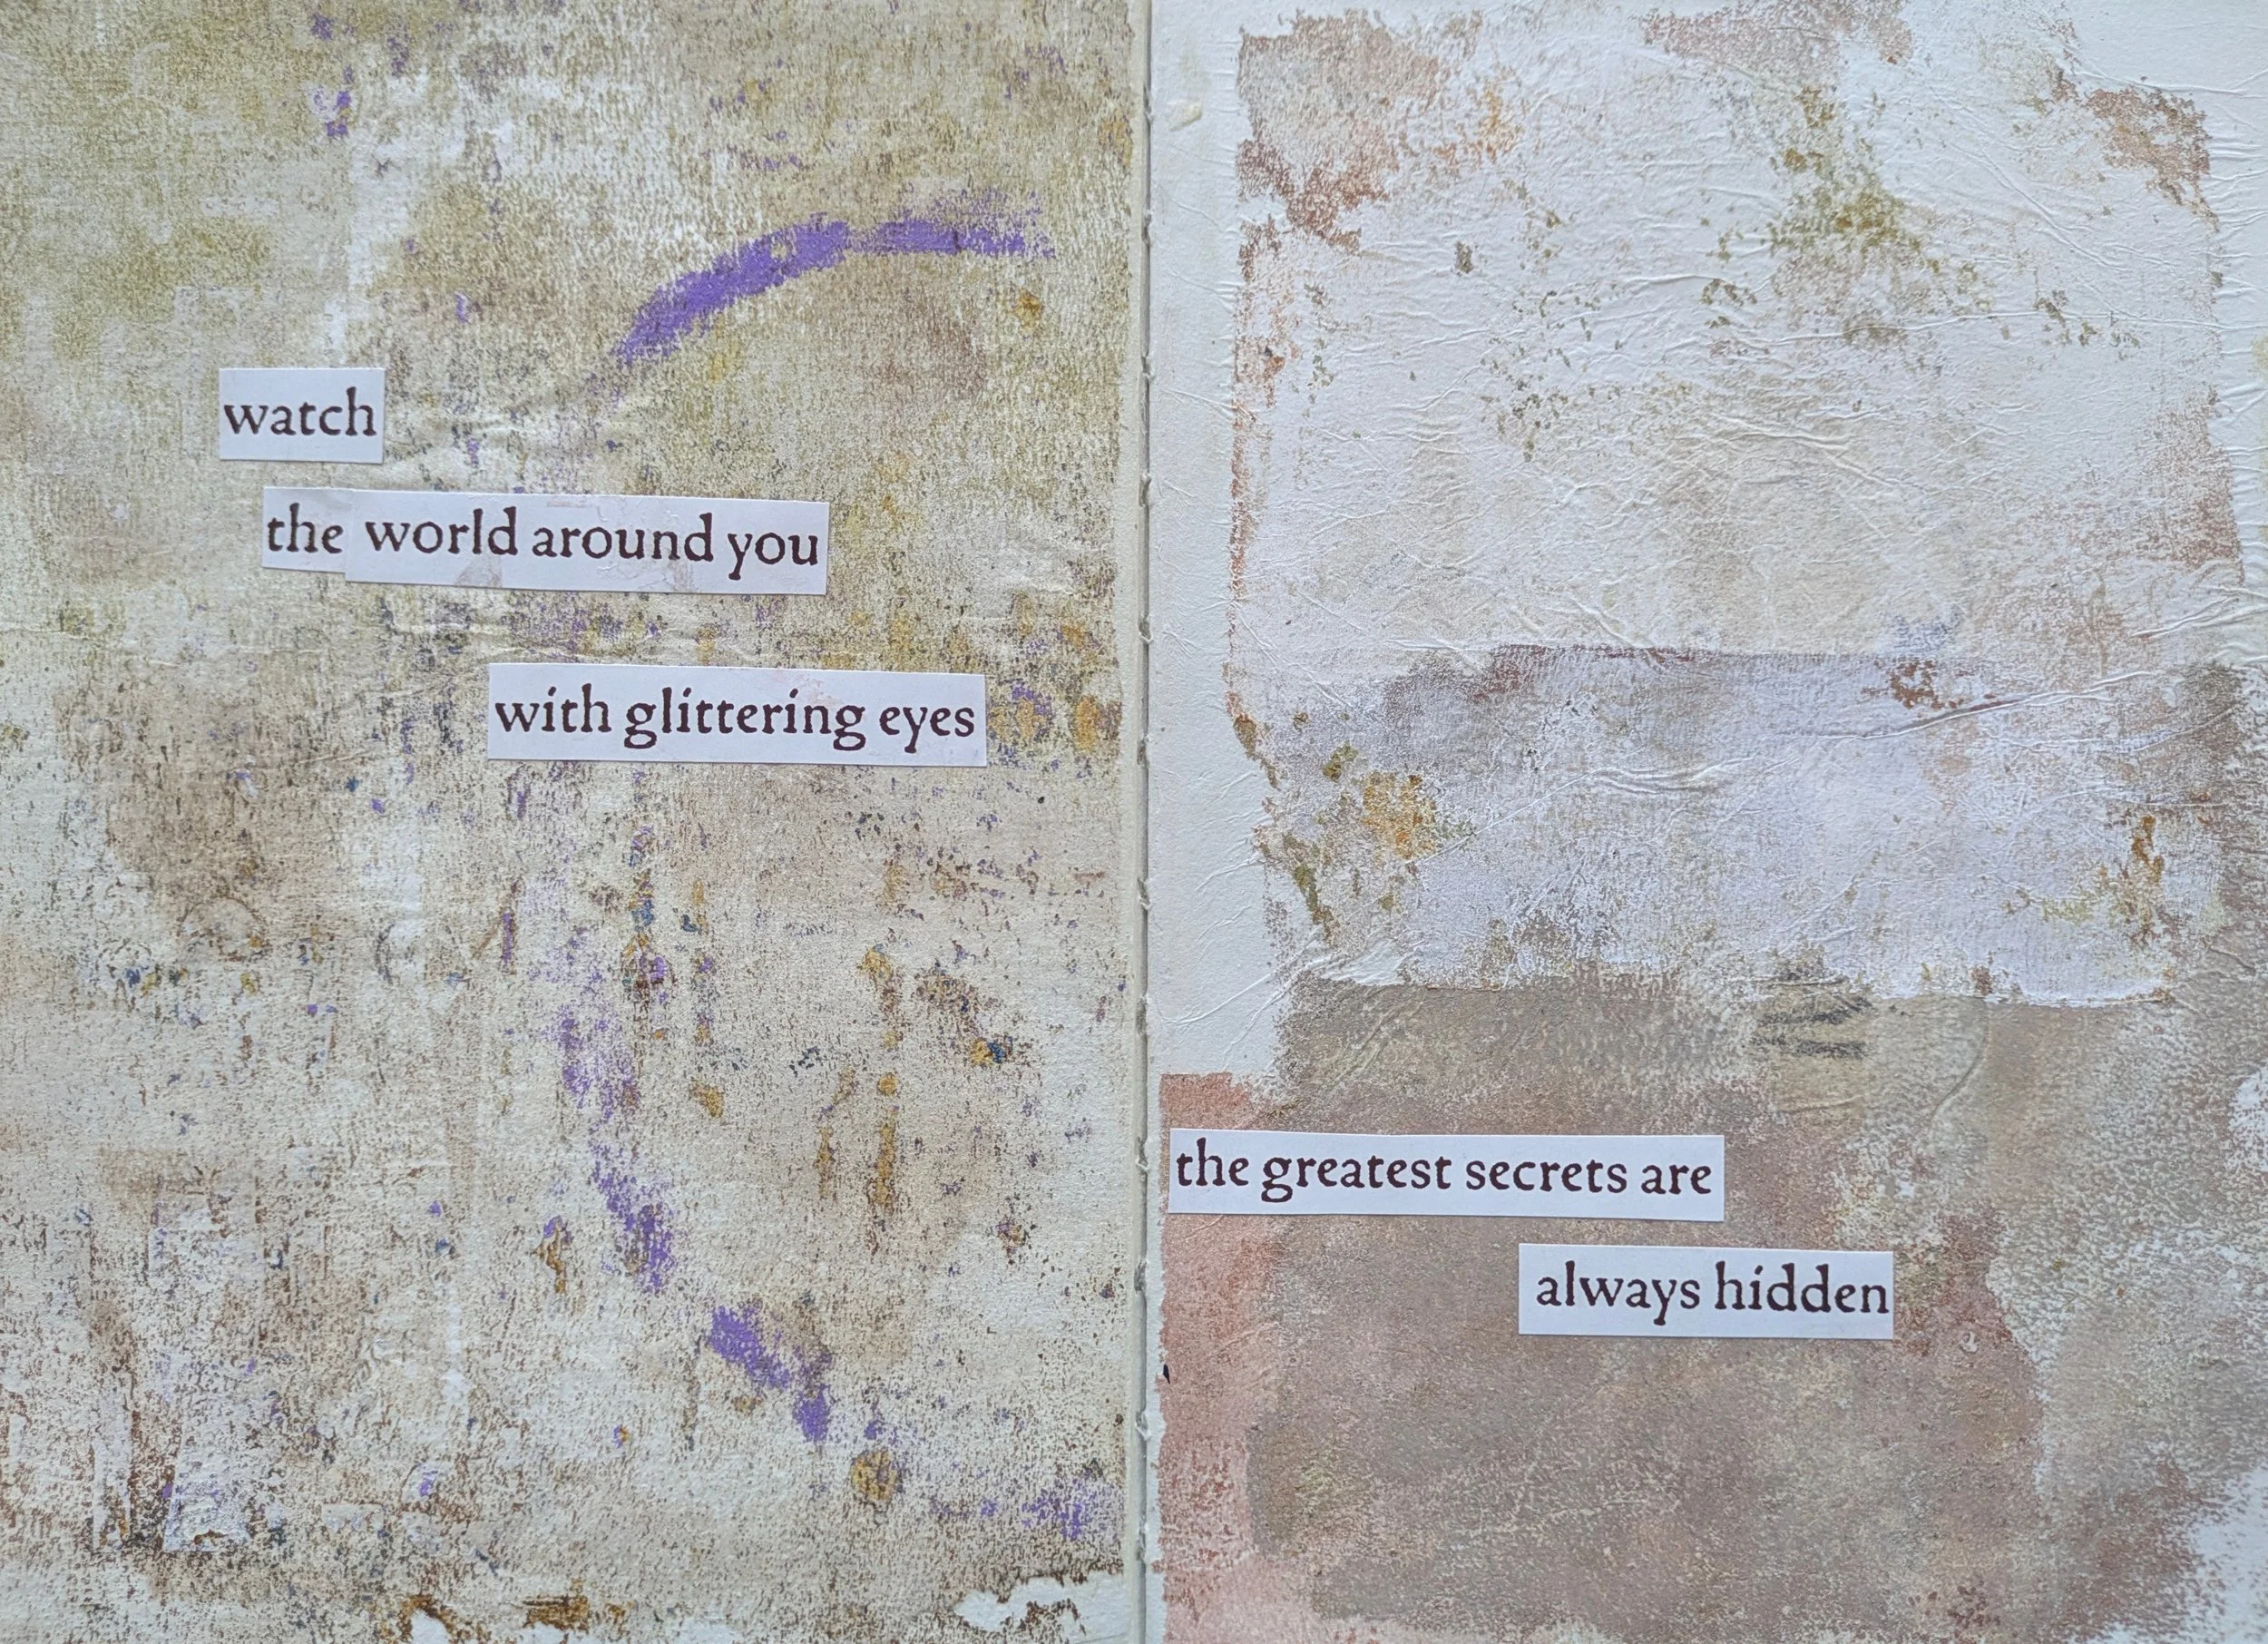 watch
the world around you
with glittering eyes
the greatest secrets are
always hidden